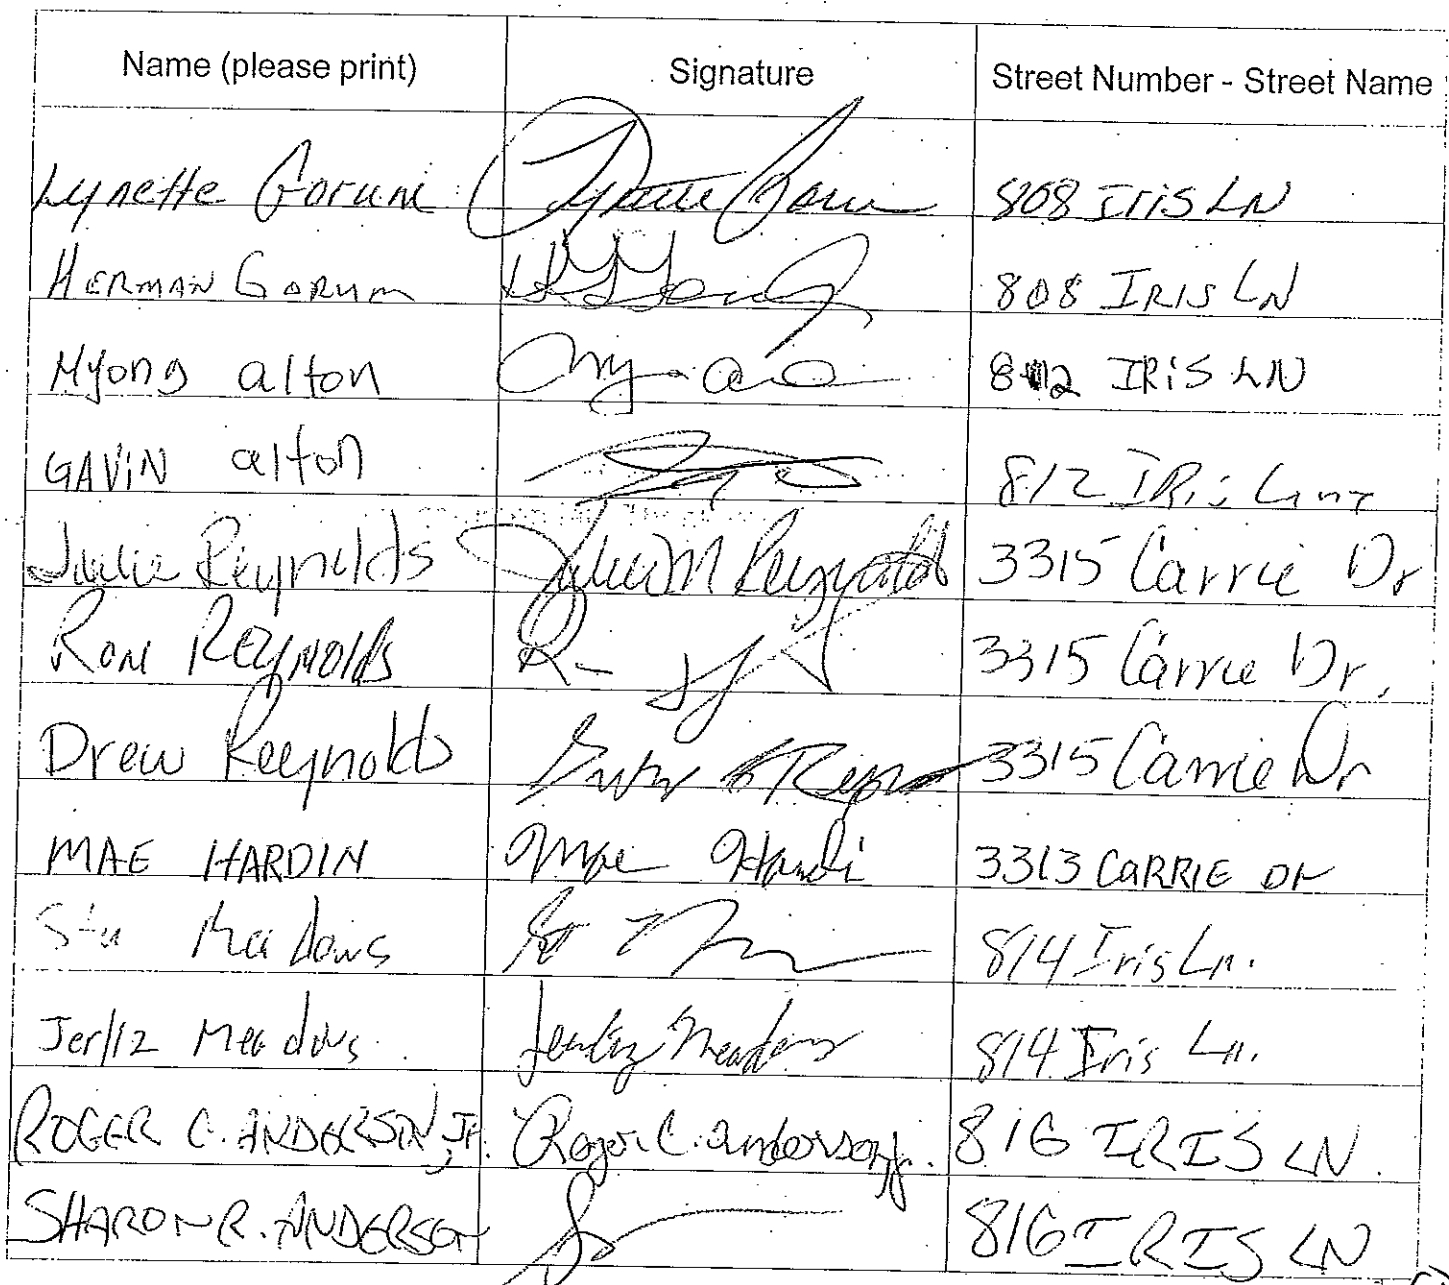 Name (please print) Signature Street Number - Street Name
Lynette Gorum Lynette Gorum 808 Iris LN
HERMAN GORUM 808 IRIS LN
Myong alton 812 IRiS LN
GAViN alton 812 IRis
Julie Reynolds Julie M Reynolds 3315 Carrie Dr
RON REYNOlds 3315 Carrie Dr.
Drew Reynolds 3315 Carrie Dr
MAE HARDIN Mae Hardin 3313 CARRIE Dr
Stu Meadows 814 Iris Ln.
Jerliz Meadows Jerliz Meadows 814 Iris Ln.
ROGER C. ANDERSON, JR. Roger C. Anderson Jr. 816 IRIS LN.
SHARON R. ANDERSON 816 IRIS LN